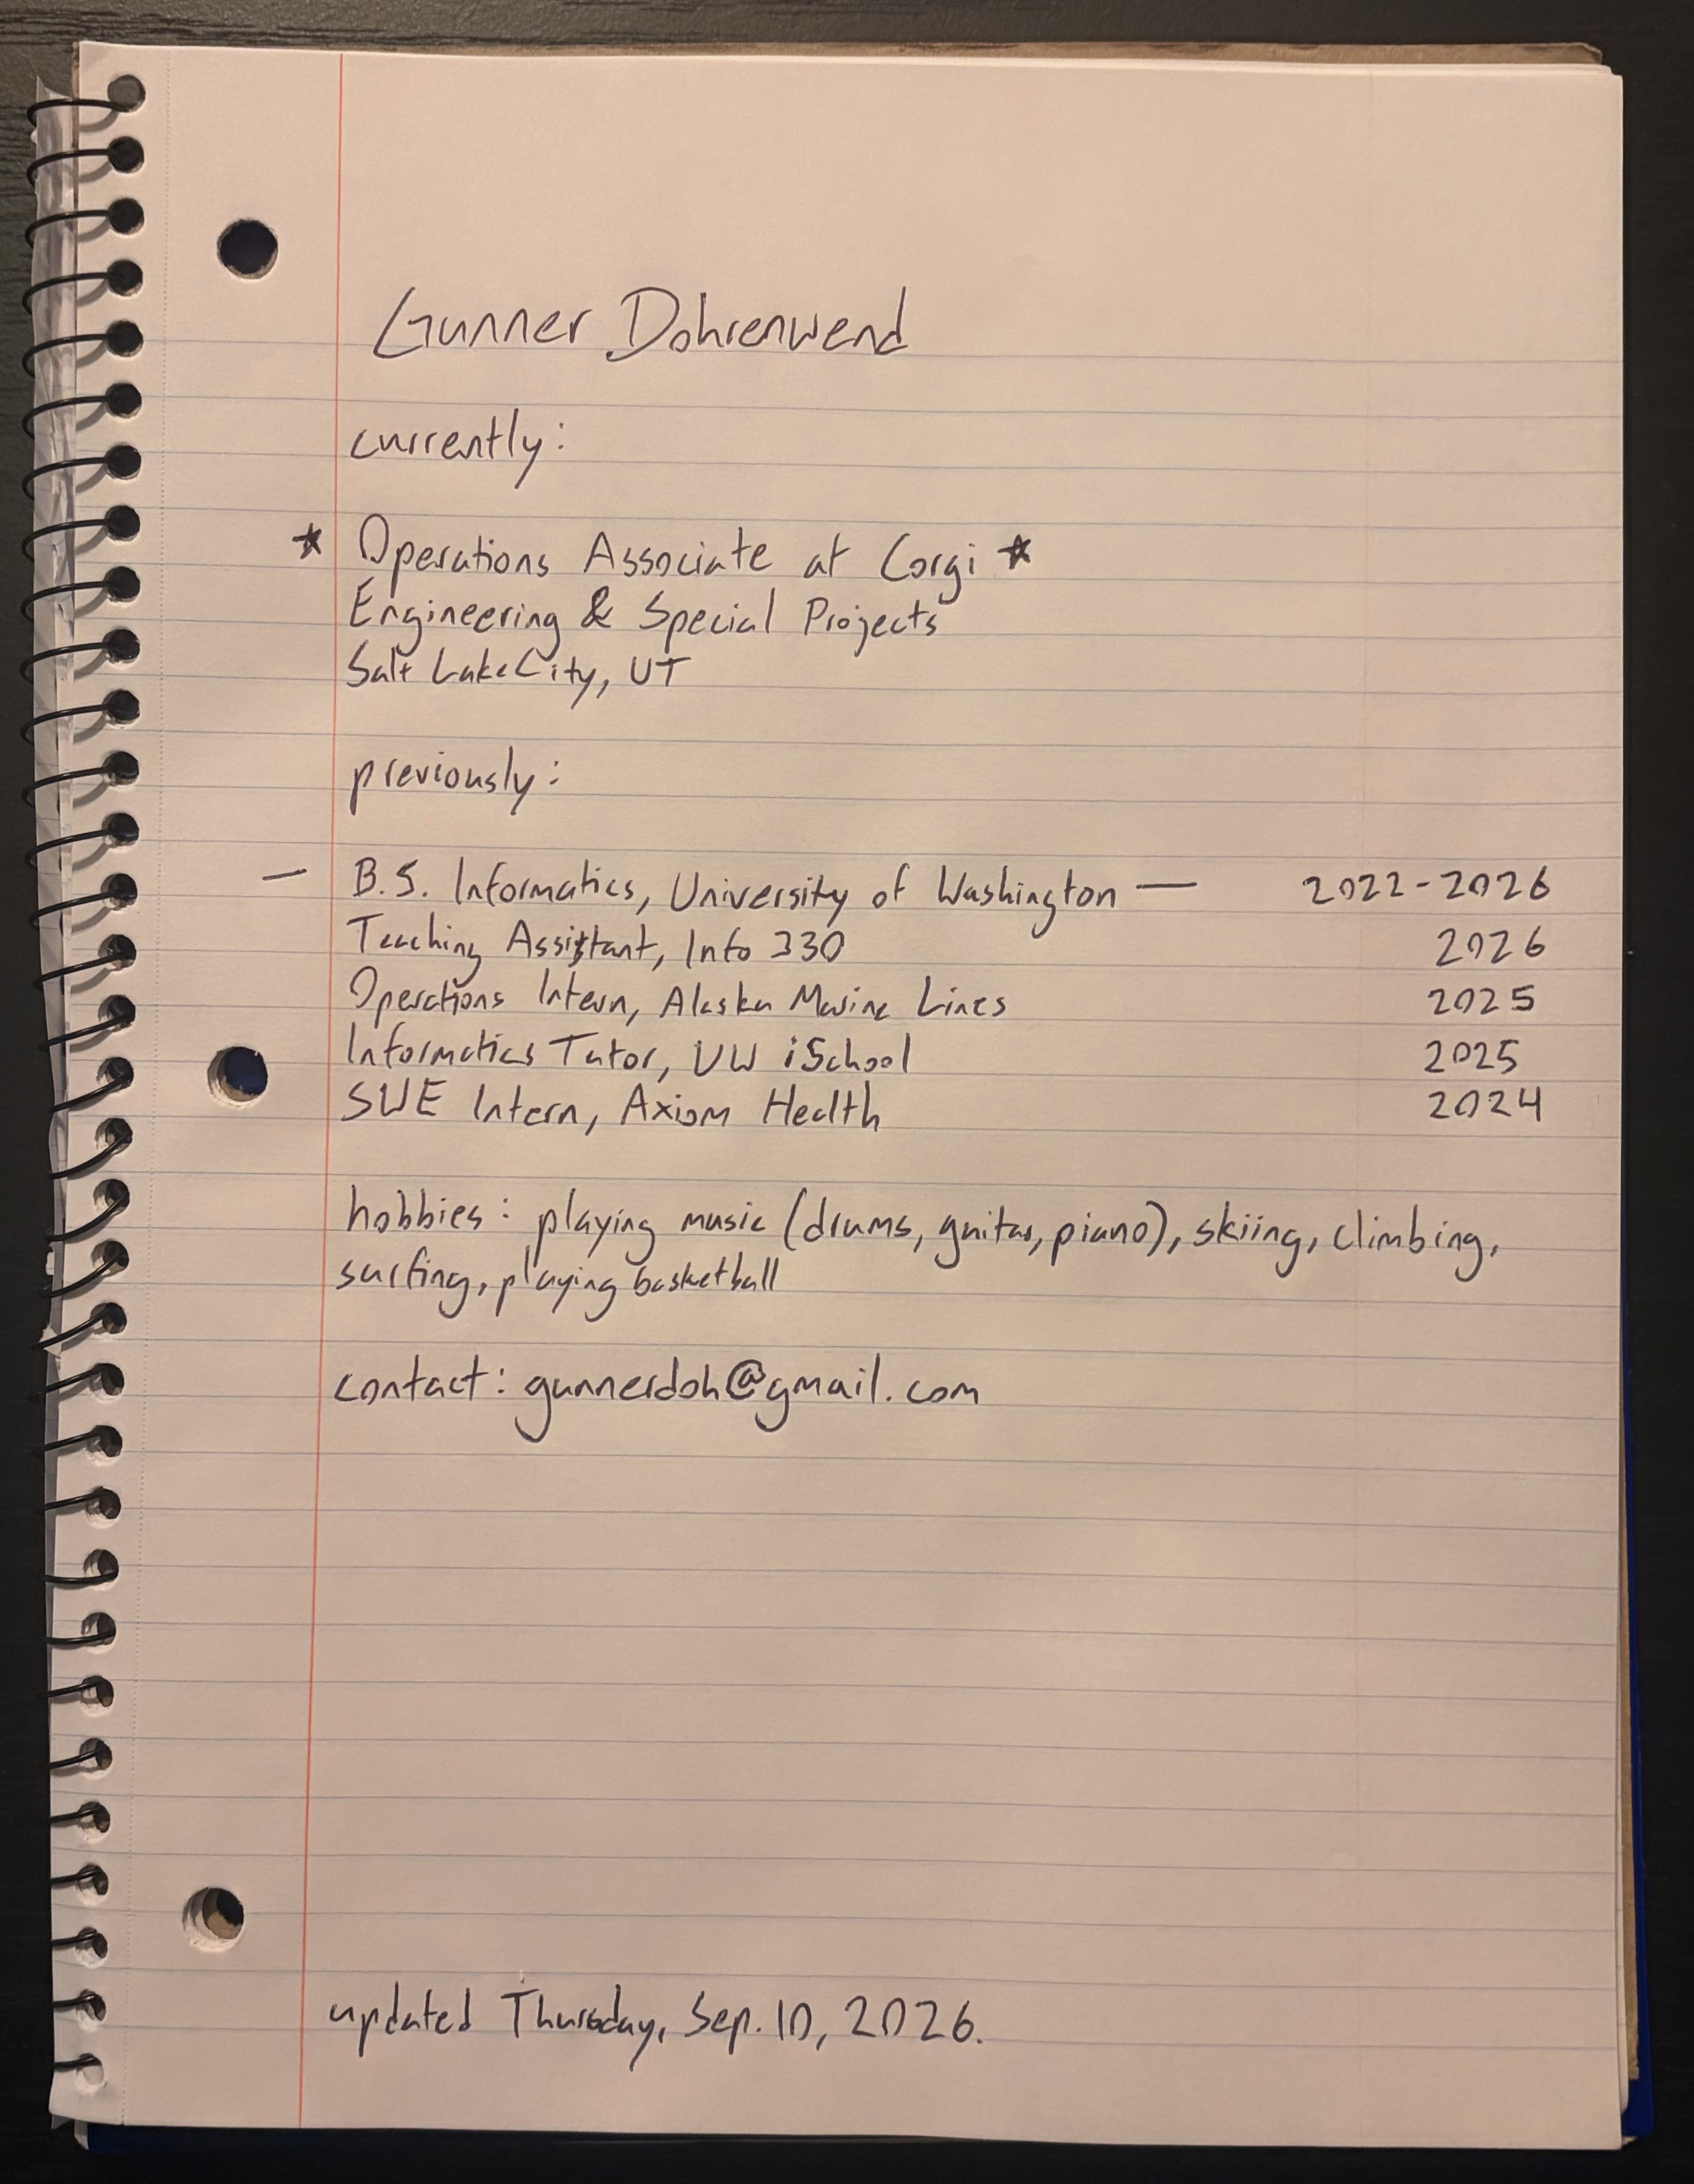 Gunner Dohrenwend
currently:
★ Operations Associate at Corgi ★
Engineering & Special Projects
Salt Lake City, UT
previously:
— B.S. Informatics, University of Washington — 2022-2026
Teaching Assistant, Info 330 2026
Operations Intern, Alaska Marine Lines 2025
Informatics Tutor, UW iSchool 2025
SWE Intern, Axiom Health 2024
hobbies: playing music (drums, guitar, piano), skiing, climbing,
surfing, playing basketball
contact: gunnerdoh@gmail.com
updated Thursday, Sep. 10, 2026.